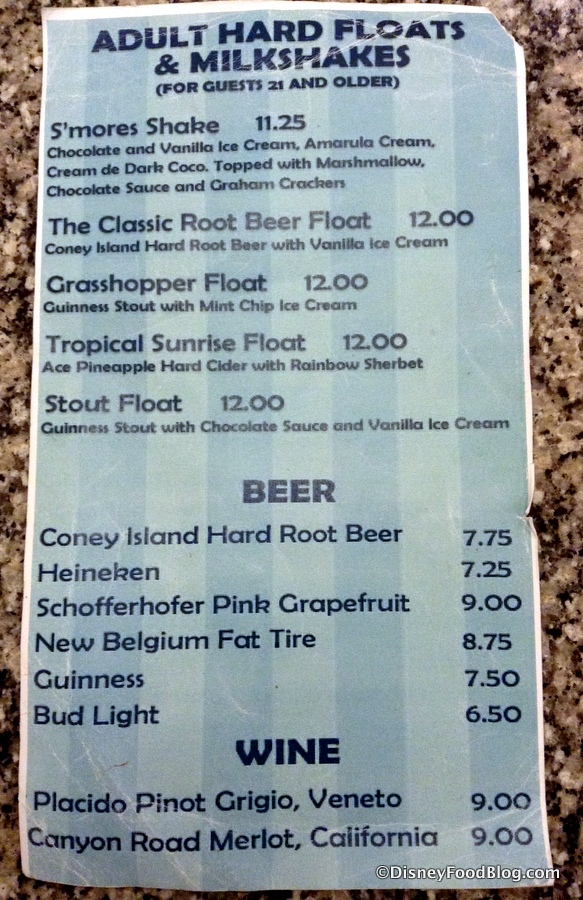 ADULT HARD FLOATS
& MILKSHAKES
(FOR GUESTS 21 AND OLDER)
S'mores Shake 11.25
Chocolate and Vanilla Ice Cream, Amarula Cream,
Cream de Dark Coco. Topped with Marshmallow,
Chocolate Sauce and Graham Crackers
The Classic Root Beer Float 12.00
Coney Island Hard Root Beer with Vanilla Ice Cream
Grasshopper Float 12.00
Guinness Stout with Mint Chip Ice Cream
Tropical Sunrise Float 12.00
Ace Pineapple Hard Cider with Rainbow Sherbet
Stout Float 12.00
Guinness Stout with Chocolate Sauce and Vanilla Ice Cream
BEER
Coney Island Hard Root Beer 7.75
Heineken 7.25
Schofferhofer Pink Grapefruit 9.00
New Belgium Fat Tire 8.75
Guinness 7.50
Bud Light 6.50
WINE
Placido Pinot Grigio, Veneto 9.00
Canyon Road Merlot, California 9.00
©DisneyFoodBlog.com